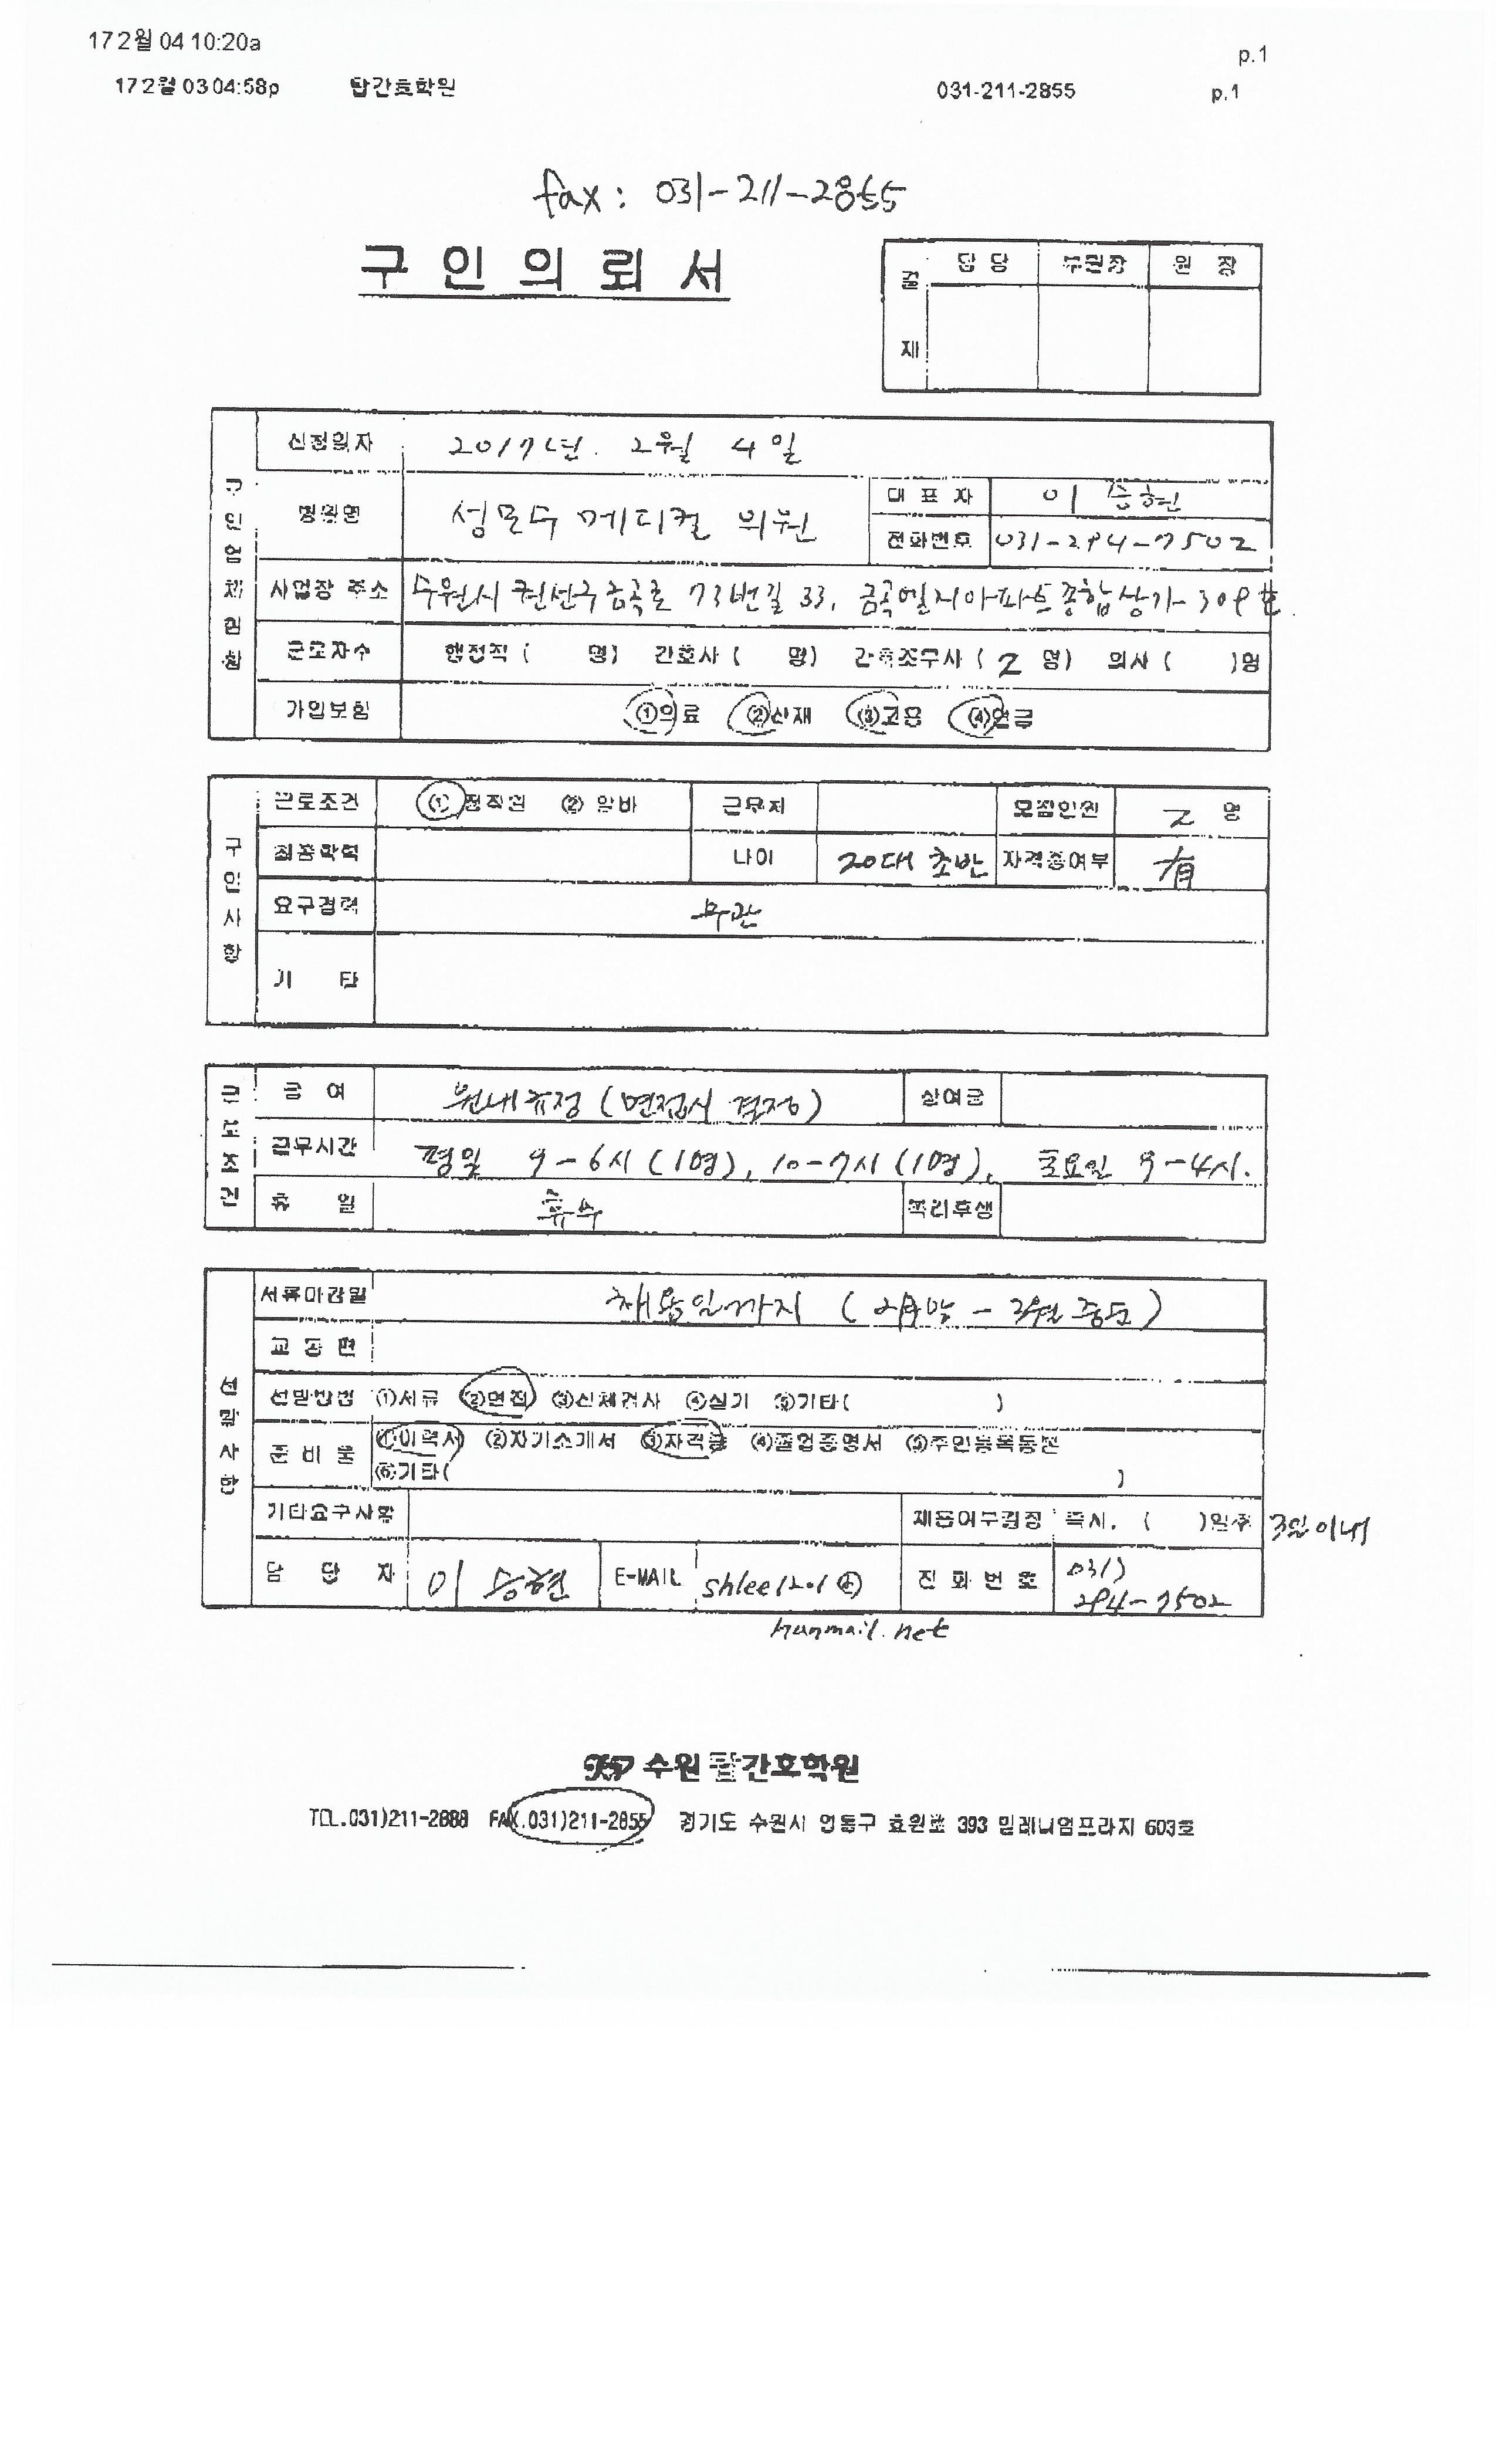 17 2월 04 10:20a p.1
17 2월 03 04:58p 탑간호학원 031-211-2855 p.1
fax : 031-211-2855
구 인 의 뢰 서
결 재 담 당 부원장 원 장
구 인 업 체 현 황
신청일자 2017년. 2월 4일
병원명 성모수메디컬 의원
대 표 자 이승현
전화번호 031-294-7502
사업장 주소 수원시 권선구 금곡로 73번길 33, 금곡엘지아파트종합상가 309호.
근로자수 행정직 ( 명) 간호사 ( 명) 간호조무사 ( 2 명) 의사 ( )명
가입보험 ①의료 ②산재 ③고용 ④연금
구 인 사 항
근로조건 ① 정직원 ② 알바 근무처 모집인원 2 명
최종학력 나이 20대 초반 자격증여부 有
요구경력 무관
기 타
근 로 조 건
급 여 원내규정 (면접시 결정) 상여금
근무시간 평일 9-6시 (1명), 10-7시 (1명), 토요일 9-4시.
휴 일 복리후생
선 발 사 항
서류마감일 채용일까지 (2월말 - 3월 중순)
교 통 편
선발방법 ①서류 ②면접 ③신체검사 ④실기 ⑤기타( )
준 비 물 ①이력서 ②자기소개서 ③자격증 ④졸업증명서 ⑤주민등록등본
⑥기타( )
기타요구사항 채용여부결정 즉시. ( )일후 3일 이내
담 당 자 이승현 E-MAIL shlee1201@
hanmail.net
전 화 번 호 031)
294-7502
수원 탑간호학원
TEL.031)211-2888 FAX.031)211-2855 경기도 수원시 영통구 효원로 393 밀레니엄프라자 603호